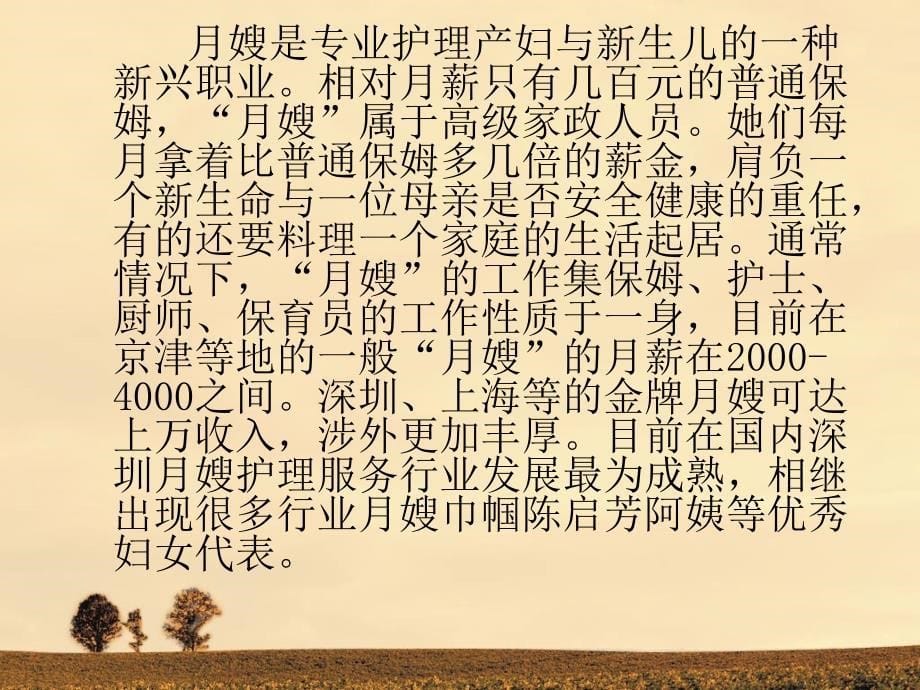 月嫂是专业护理产妇与新生儿的一种
新兴职业。相对月薪只有几百元的普通保
姆，“月嫂”属于高级家政人员。她们每
月拿着比普通保姆多几倍的薪金，肩负一
个新生命与一位母亲是否安全健康的重任，
有的还要料理一个家庭的生活起居。通常
情况下，“月嫂”的工作集保姆、护士、
厨师、保育员的工作性质于一身，目前在
京津等地的一般“月嫂”的月薪在2000-
4000之间。深圳、上海等的金牌月嫂可达
上万收入，涉外更加丰厚。目前在国内深
圳月嫂护理服务行业发展最为成熟，相继
出现很多行业月嫂巾帼陈启芳阿姨等优秀
妇女代表。